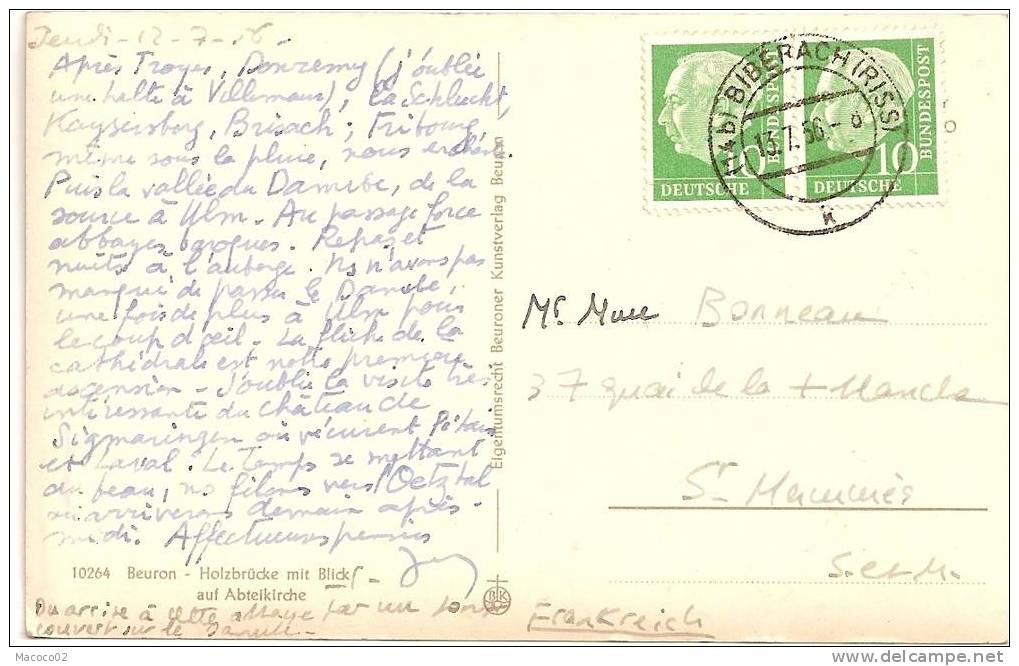 Jeudi - 12-7-56 -
Après Troyes, Domremy (j'oublie
une halte à Villemaur), la Schlucht,
Kaysersberg, Brisach, Fribourg,
même sous la pluie, nous
Puis la vallée du Danube, de la
source à Ulm. Au passage force
abbayes baroques. Repas et
nuits à l'auberge. Ns n'avons pas
manqué de passer le Danube,
une fois de plus à Ulm pour
le coup d'œil. La flèche de la
cathédrale est notre première
ascension - J'oublie la visite très
intéressante du château de
Sigmaringen où vécurent Pétain
et Laval. Le Temps se mettant
au beau, ns filons vers l'Oetztal
où arriverons demain après-
midi. Affectueuses pensées
10264 Beuron - Holzbrücke mit Blick
auf Abteikirche
On arrive à cette abbaye par un pont
couvert sur le Danube -
Eigentumsrecht Beuroner Kunstverlag Beuron
BK
(14b) BIBERACH (RISS)
13.7.56
k
10
DEUTSCHE
BUNDESPOST
10
DEUTSCHE
BUNDESPOST
Mr Mme Bonneau
37 quai de la
St Mammès
S. et M.
Frankreich
Macoco02